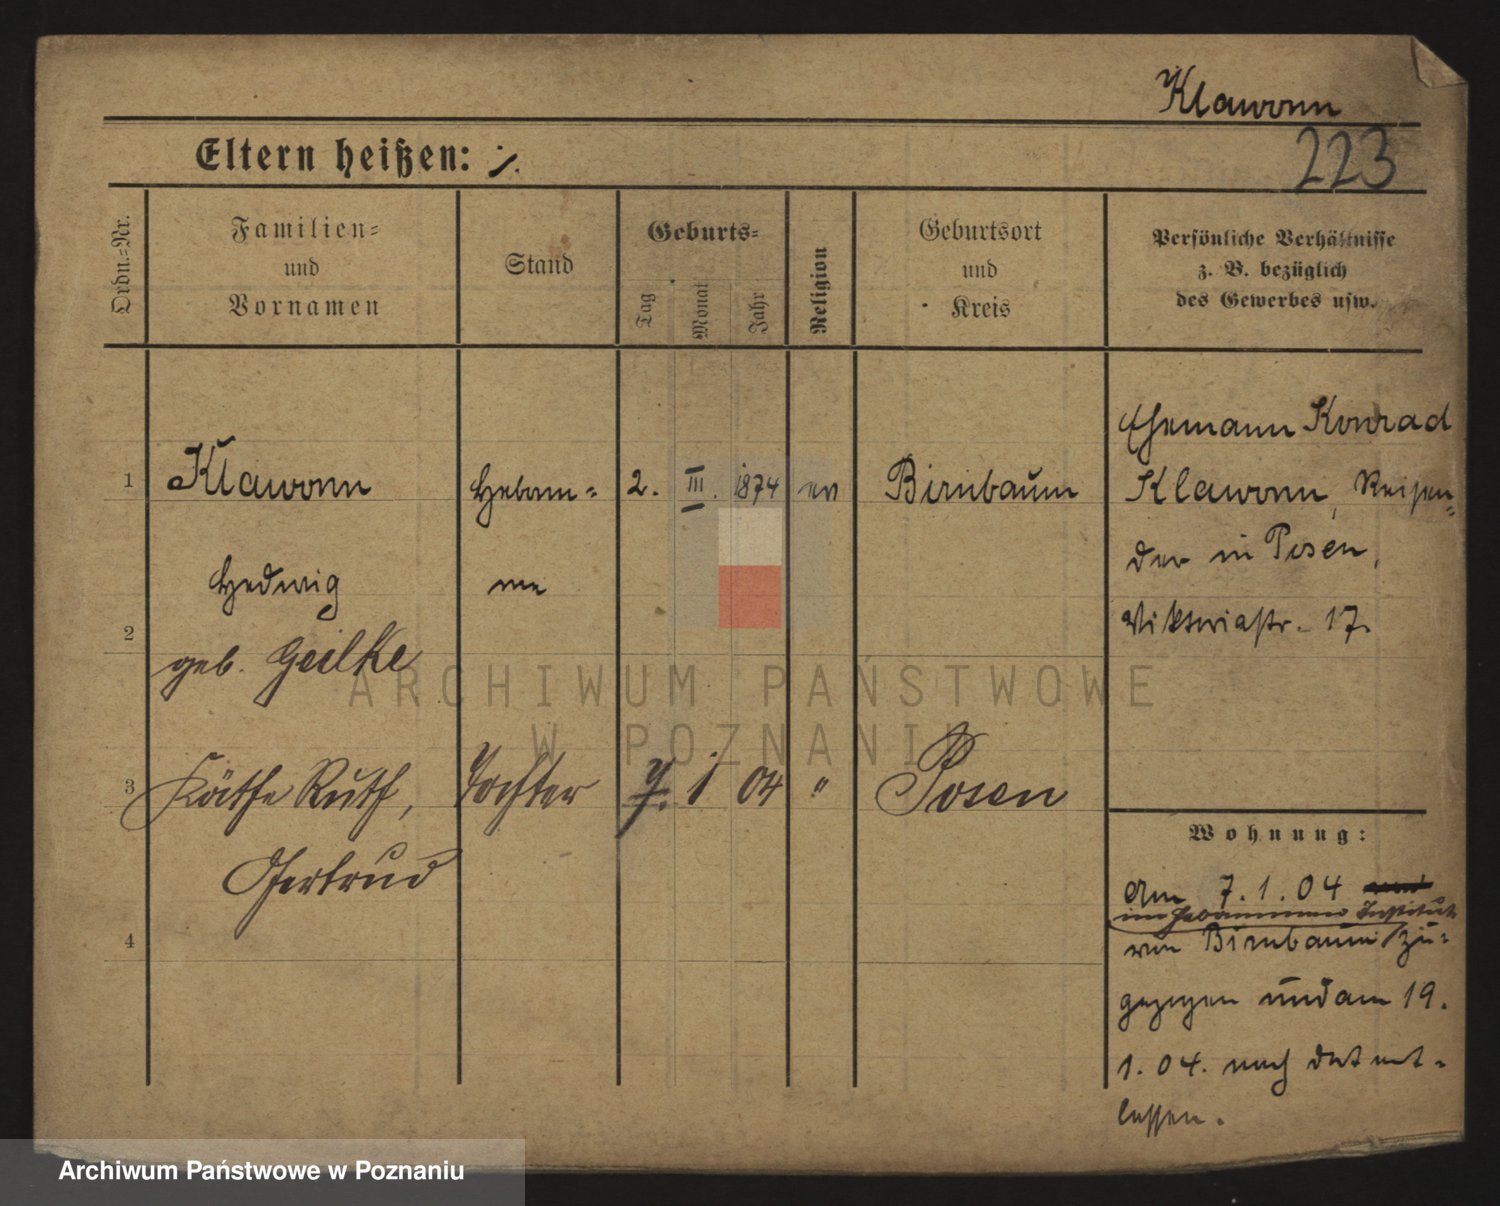 Klawonn
223
Eltern heißen: ·/.
Ordn.=Nr.
Familien=
und
Vornamen
Stand
Geburts=
Tag
Monat
Jahr
Religion
Geburtsort
und
Kreis
Persönliche Verhältnisse
z. B. bezüglich
des Gewerbes usw.
1
Klawonn
Hebam=
2. III. 1874
ev
Birnbaum
Ehemann Konrad
Klawonn, Reisen=
der in Posen,
Viktoriastr. 17.
Hedwig
me
2
geb. Geilke
3
Käthe Ruth,
Tochter
7. 1 04
"
Posen
Gertrud
4
Wohnung:
Am 7.1.04
im Hebammen Institut
von Birnbaum zu=
gezogen und am 19.
1.04. nach dort ent=
lassen.
ARCHIWUM PAŃSTWOWE
W POZNANIU
Archiwum Państwowe w Poznaniu